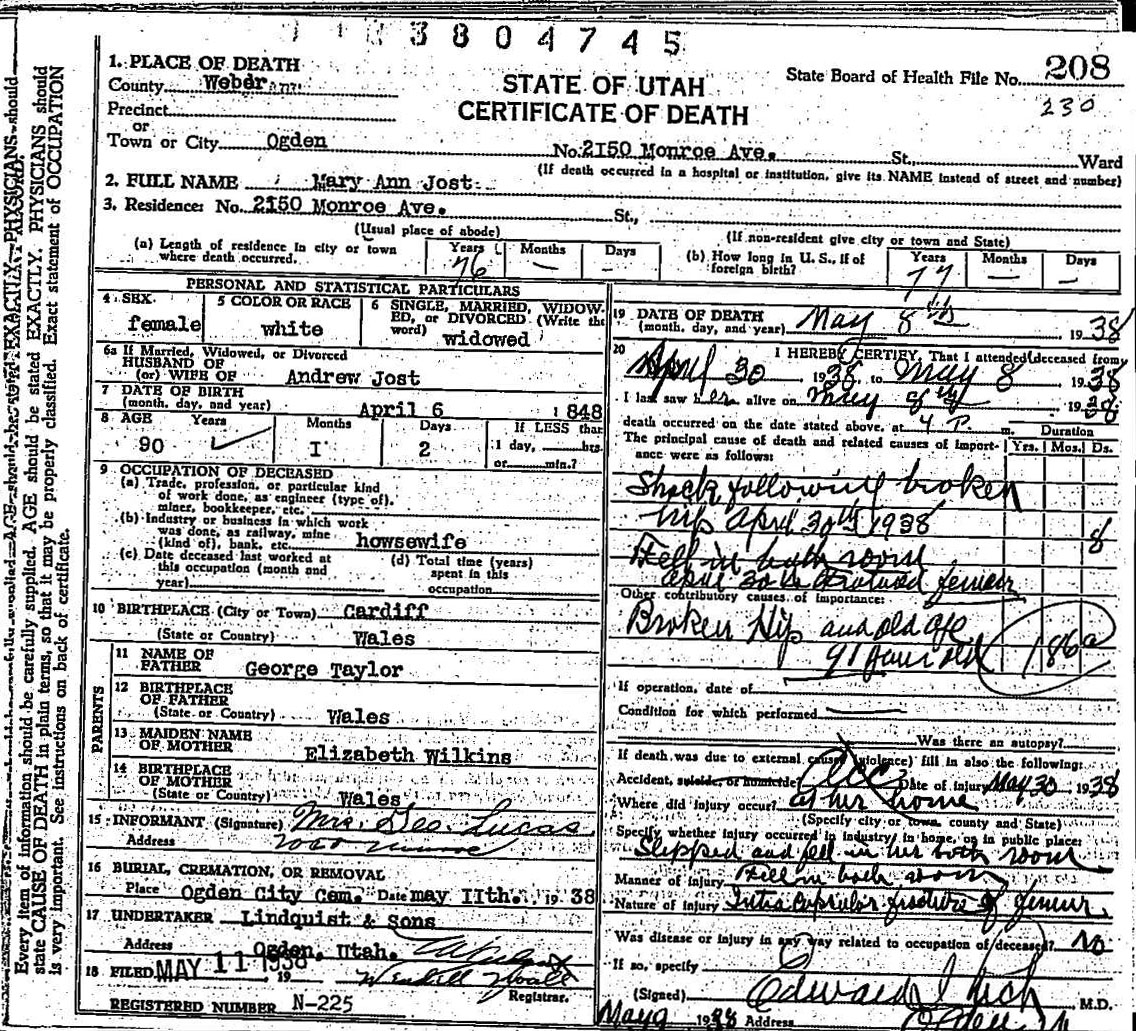 3 8 0 4 7 4 5
1. PLACE OF DEATH
County Weber
STATE OF UTAH
CERTIFICATE OF DEATH
State Board of Health File No. 208
230
Precinct
or
Town or City Ogden No. 2150 Monroe Ave. St., Ward
(If death occurred in a hospital or institution, give its NAME instead of street and number)
2. FULL NAME Mary Ann Jost
3. Residence: No. 2150 Monroe Ave. St.,
(Usual place of abode) (If non-resident give city or town and State)
(a) Length of residence in city or town where death occurred. Years 76 Months — Days —
(b) How long in U. S., if of foreign birth? Years 77 Months — Days —
PERSONAL AND STATISTICAL PARTICULARS
4 SEX female
5 COLOR OR RACE white
6 SINGLE, MARRIED, WIDOWED, OR DIVORCED (Write the word) widowed
6a If Married, Widowed, or Divorced
HUSBAND OF
(or) WIFE OF Andrew Jost
7 DATE OF BIRTH
(month, day, and year) April 6 1848
8 AGE Years 90 Months I Days 2
If LESS than 1 day, hrs. or min.?
9 OCCUPATION OF DECEASED
(a) Trade, profession, or particular kind
of work done, as engineer (type of),
miner, bookkeeper, etc.
(b) Industry or business in which work
was done, as railway, mine
(kind of), bank, etc. howsewife
(c) Date deceased last worked at
this occupation (month and
year)
(d) Total time (years)
spent in this
occupation
10 BIRTHPLACE (City or Town) Cardiff
(State or Country) Wales
PARENTS
11 NAME OF
FATHER George Taylor
12 BIRTHPLACE
OF FATHER
(State or Country) Wales
13 MAIDEN NAME
OF MOTHER Elizabeth Wilkins
14 BIRTHPLACE
OF MOTHER
(State or Country) Wales
15 INFORMANT (Signature) Mrs. Geo. Lucas
Address Monroe
16 BURIAL, CREMATION, OR REMOVAL
Place Ogden City Cem. Date may IIth. 1938
17 UNDERTAKER Lindquist & Sons
Address Ogden, Utah.
18 FILED MAY 11 1938 19
Registrar.
REGISTERED NUMBER N-225
19 DATE OF DEATH
(month, day, and year) May 8th 1938
20 I HEREBY CERTIFY, That I attended deceased from
April 30 1938 to May 8 1938
I last saw her alive on May 8th 1938
death occurred on the date stated above, at 4 P. m. Duration
The principal cause of death and related causes of importance were as follows: Yrs. Mos. Ds.
Shock following broken
hip April 30th 1938 8
Fell in bath room
April 30th femur
Other contributory causes of importance:
Broken Hip and old age
186a
If operation, date of
Condition for which performed
Was there an autopsy?
If death was due to external cause (violence) fill in also the following:
Accident, suicide, or homicide? Acc Date of injury May 30 1938
Where did injury occur? at her home
(Specify city or town, county and State)
Specify whether injury occurred in industry, in home, or in public place:
Slipped and fell in her bath room
Manner of injury Fell in bath room
Nature of injury Intra capsular fracture of femur
Was disease or injury in any way related to occupation of deceased? No
If so, specify
(Signed) Edward I Rich M.D.
May 9 1938 Address Ogden
Every item of information should be carefully supplied. AGE should be stated EXACTLY. PHYSICIANS should
state CAUSE OF DEATH in plain terms, so that it may be properly classified. Exact statement of OCCUPATION
is very important. See instructions on back of certificate.